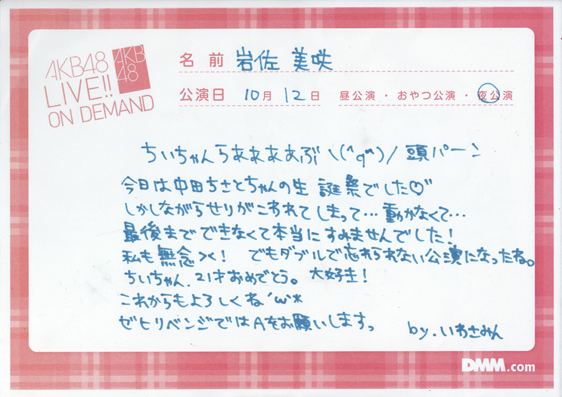 AKB48
LIVE!!
ON DEMAND
AKB
48
名前 岩佐美咲
公演日 10月12日 昼公演・おやつ公演・夜公演
ちぃちゃんらぁぁぁぁぶ\(^q^)/頭パーン
今日は中田ちさとちゃんの生誕祭でした♡
しかしながらせりがこわれてしまって…動かなくて…
最後までできなくて本当にすみませんでした!
私も無念><! でもダブルで忘れられない公演になったね。
ちぃちゃん、21才おめでとう。大好き!
これからもよろしくね'ω'*
ぜひリベンジではAをお願いします。
by.いわさみん
DMM.com